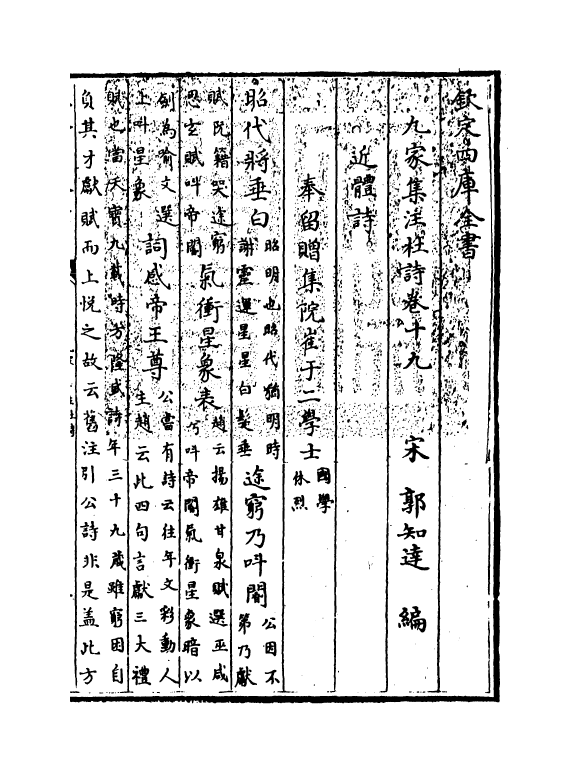 欽定四庫全書
九家集注杜詩卷十九
宋 郭知達 編
近體詩
奉留贈集院崔于二學士國學休烈
昭代將垂白昭明也昭代猶明時謝靈運星星白髮垂途窮乃呌閽公因不第乃獻
賦阮籍哭途窮思玄賦呌帝閽氣衝星象表趙云揚雄甘泉賦選巫咸兮呌帝閽氣衝星象暗以
劍為喻文選上呌星象詞感帝王尊公嘗有詩云往年文彩動人主趙云此四句言獻三大禮
賦也當天寳九載時方隆盛詩年三十九歲雖窮困自
負其才獻賦而上悅之故云舊注引公詩非是蓋此方